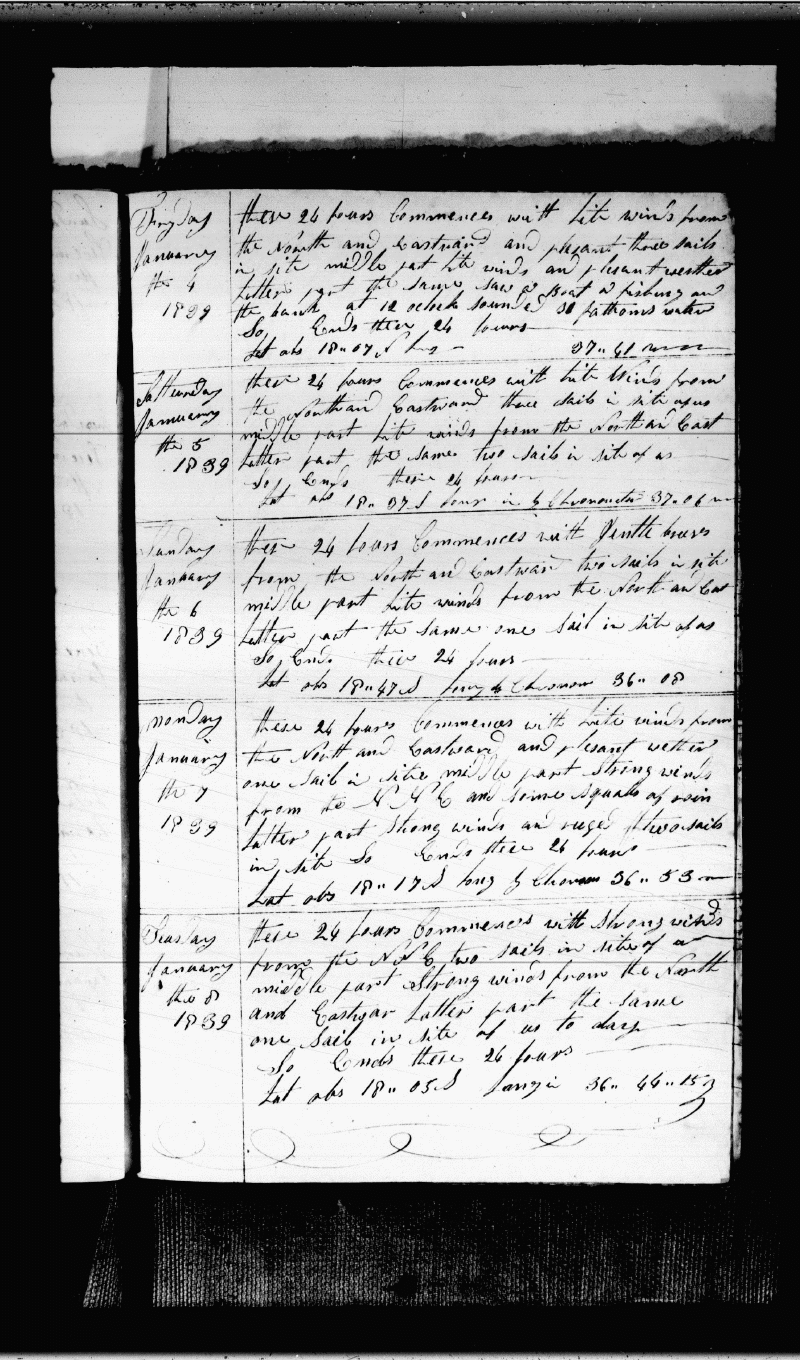 Fryday
January
the 4
1839
these 24 hours Commences with Lite winds from
the North and Eastward and plesant three sails
in site middle part Lite winds and plesant wether
Latter part the same saw a Boat a fishing on
the bank at 12 oclock sounded 30 fathoms water
So Ends these 24 hours
Lat obs 18"07 S Long 37"41
Satturday
January
the 5
1839
these 24 hours Commences with Lite Winds from
the North and Eastward three sails in site of us
middle part Lite winds from the North an East
Latter part the same two sails in site of us
So Ends these 24 hours
Lat obs 18"37 S Long in by Chronometer 37"06
Sunday
January
the 6
1839
these 24 hours Commences with Gentle breses
from the North and Eastward two sails in site
middle part Lite winds from the North an East
Latter part the same one sail in site of us
So Ends these 24 hours
Lat obs 18"47 S Long by Chronom 36"08
Monday
January
the 7
1839
these 24 hours Commences with Lite winds from
the North and Eastward and plesant wether
one sail in site middle part Strong winds
from the N N E and some squals of rain
Latter part Strong winds an ruged two sails
in site So Ends these 24 hours
Lat obs 18"17 S Long by Chronom 36"53
Teusday
January
the 8
1839
these 24 hours Commences with Strong winds
from the N N E two sails in site of us
middle part Strong winds from the North
and Eastwar Latter part the same
one sail in site of us to day
So Ends these 24 hours
Lat obs 18"05 S Long in 36"44"15